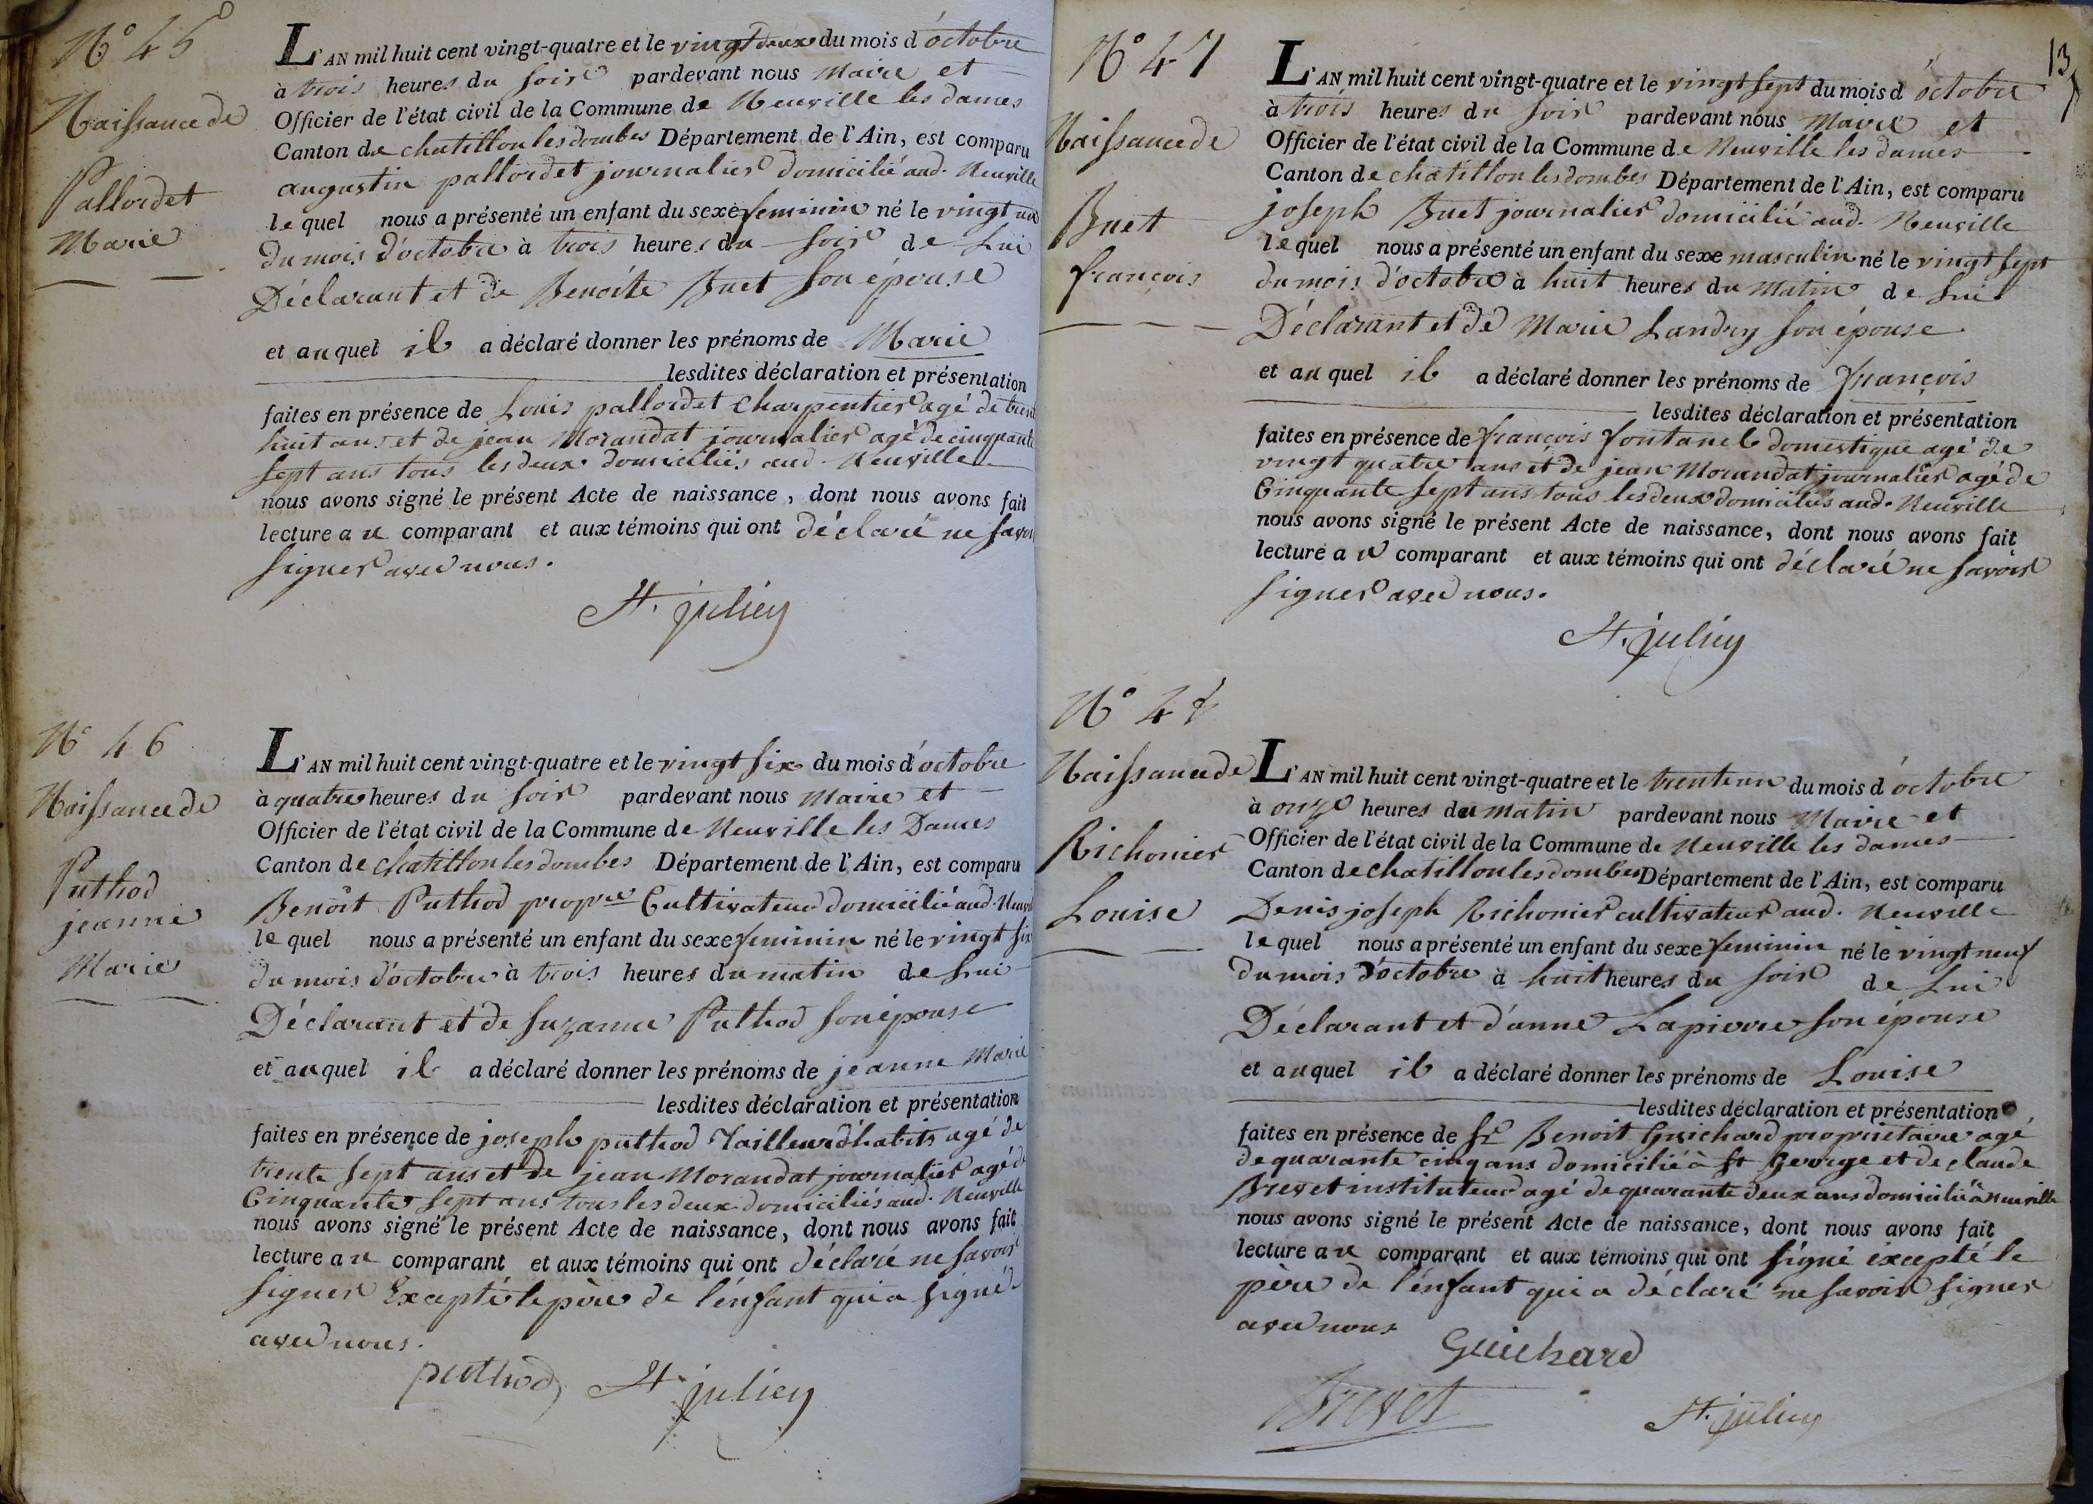 N° 45
Naissance de
Pallordet
Marie
L'AN mil huit cent vingt-quatre et le vingt deux du mois d'octobre
à trois heures du soir pardevant nous Maire et
Officier de l'état civil de la Commune de Neuville les dames
Canton de chatillon les dombes Département de l'Ain, est comparu
augustin pallordet journalier domicilié aud. Neuville
lequel nous a présenté un enfant du sexe feminin né le vingt un
du mois d'octobre à trois heures du soir de Lui
Déclarant et de Benoîte Buet son épouse
et auquel il a déclaré donner les prénoms de Marie
lesdites déclaration et présentation
faites en présence de Louis pallordet Charpentier agé de trent
huit ans et de jean Morandat journalier agé de cinquante
sept ans tous les deux domiciliés aud. Neuville
nous avons signé le présent Acte de naissance, dont nous avons fait
lecture au comparant et aux témoins qui ont déclaré ne savoir
signer avec nous.
St. julien
N° 46
Naissance de
Puthod
jeanne
Marie
L'AN mil huit cent vingt-quatre et le vingt six du mois d'octobre
à quatre heures du soir pardevant nous Maire et
Officier de l'état civil de la Commune de Neuville les Dames
Canton de chatillon les dombes Département de l'Ain, est comparu
Benoît Puthod propre Cultivateur domicilié aud. Neuvil
lequel nous a présenté un enfant du sexe feminin né le vingt six
du mois d'octobre à trois heures du matin de Lui
Déclarant et de Suzanne Puthod son épouse
et auquel il a déclaré donner les prénoms de jeanne Marie
lesdites déclaration et présentation
faites en présence de joseph puthod Tailleur d'habits agé de
trente sept ans et de jean Morandat journalier agé de
Cinquante sept ans tous les deux domiciliés aud. Neuville
nous avons signé le présent Acte de naissance, dont nous avons fait
lecture au comparant et aux témoins qui ont déclaré ne savoir
signer Excepté le père de l'énfant qui a signé
avec nous.
puthod St. julien
13
N° 47
Naissance de
Buet
françois
L'AN mil huit cent vingt-quatre et le vingt sept du mois d'octobre
à trois heures du soir pardevant nous Maire et
Officier de l'état civil de la Commune de Neuville les dames
Canton de chatillon les dombes Département de l'Ain, est comparu
joseph Buet journalier domicilié aud. Neuville
lequel nous a présenté un enfant du sexe masculin né le vingt sept
du mois d'octobre à huit heures du Matin de Lui
Déclarant et de Marie Landry son épouse
et auquel il a déclaré donner les prénoms de françois
lesdites déclaration et présentation
faites en présence de françois fontanel domestique agé de
vingt quatre ans et de jean Morandat journalier agé de
Cinquante sept ans tous les deux domiciliés aud. Neuville
nous avons signé le présent Acte de naissance, dont nous avons fait
lecture au comparant et aux témoins qui ont déclaré ne savoir
signer avec nous.
St. julien
N° 48
Naissance de
Richonier
Louise
L'AN mil huit cent vingt-quatre et le trente un du mois d'octobre
à onze heures du matin pardevant nous Maire et
Officier de l'état civil de la Commune de Neuville les dames
Canton de chatillon les dombes Département de l'Ain, est comparu
Denis joseph Richonier cultivateur aud. Neuville
lequel nous a présenté un enfant du sexe feminin né le vingt neuf
du mois d'octobre à huit heures du soir de Lui
Déclarant et d'anne Lapierre son épouse
et auquel il a déclaré donner les prénoms de Louise
lesdites déclaration et présentation
faites en présence de sr. Benoit Guichard proprietaire agé
de quarante cinq ans domicilié à St George et de claude
Brevet instituteur agé de quarante deux ans domicilié à Neuville
nous avons signé le présent Acte de naissance, dont nous avons fait
lecture au comparant et aux témoins qui ont signé éxcepté le
père de l'énfant qui a déclaré ne savoir signer
avec nous
Guichard
Brevet St. julien